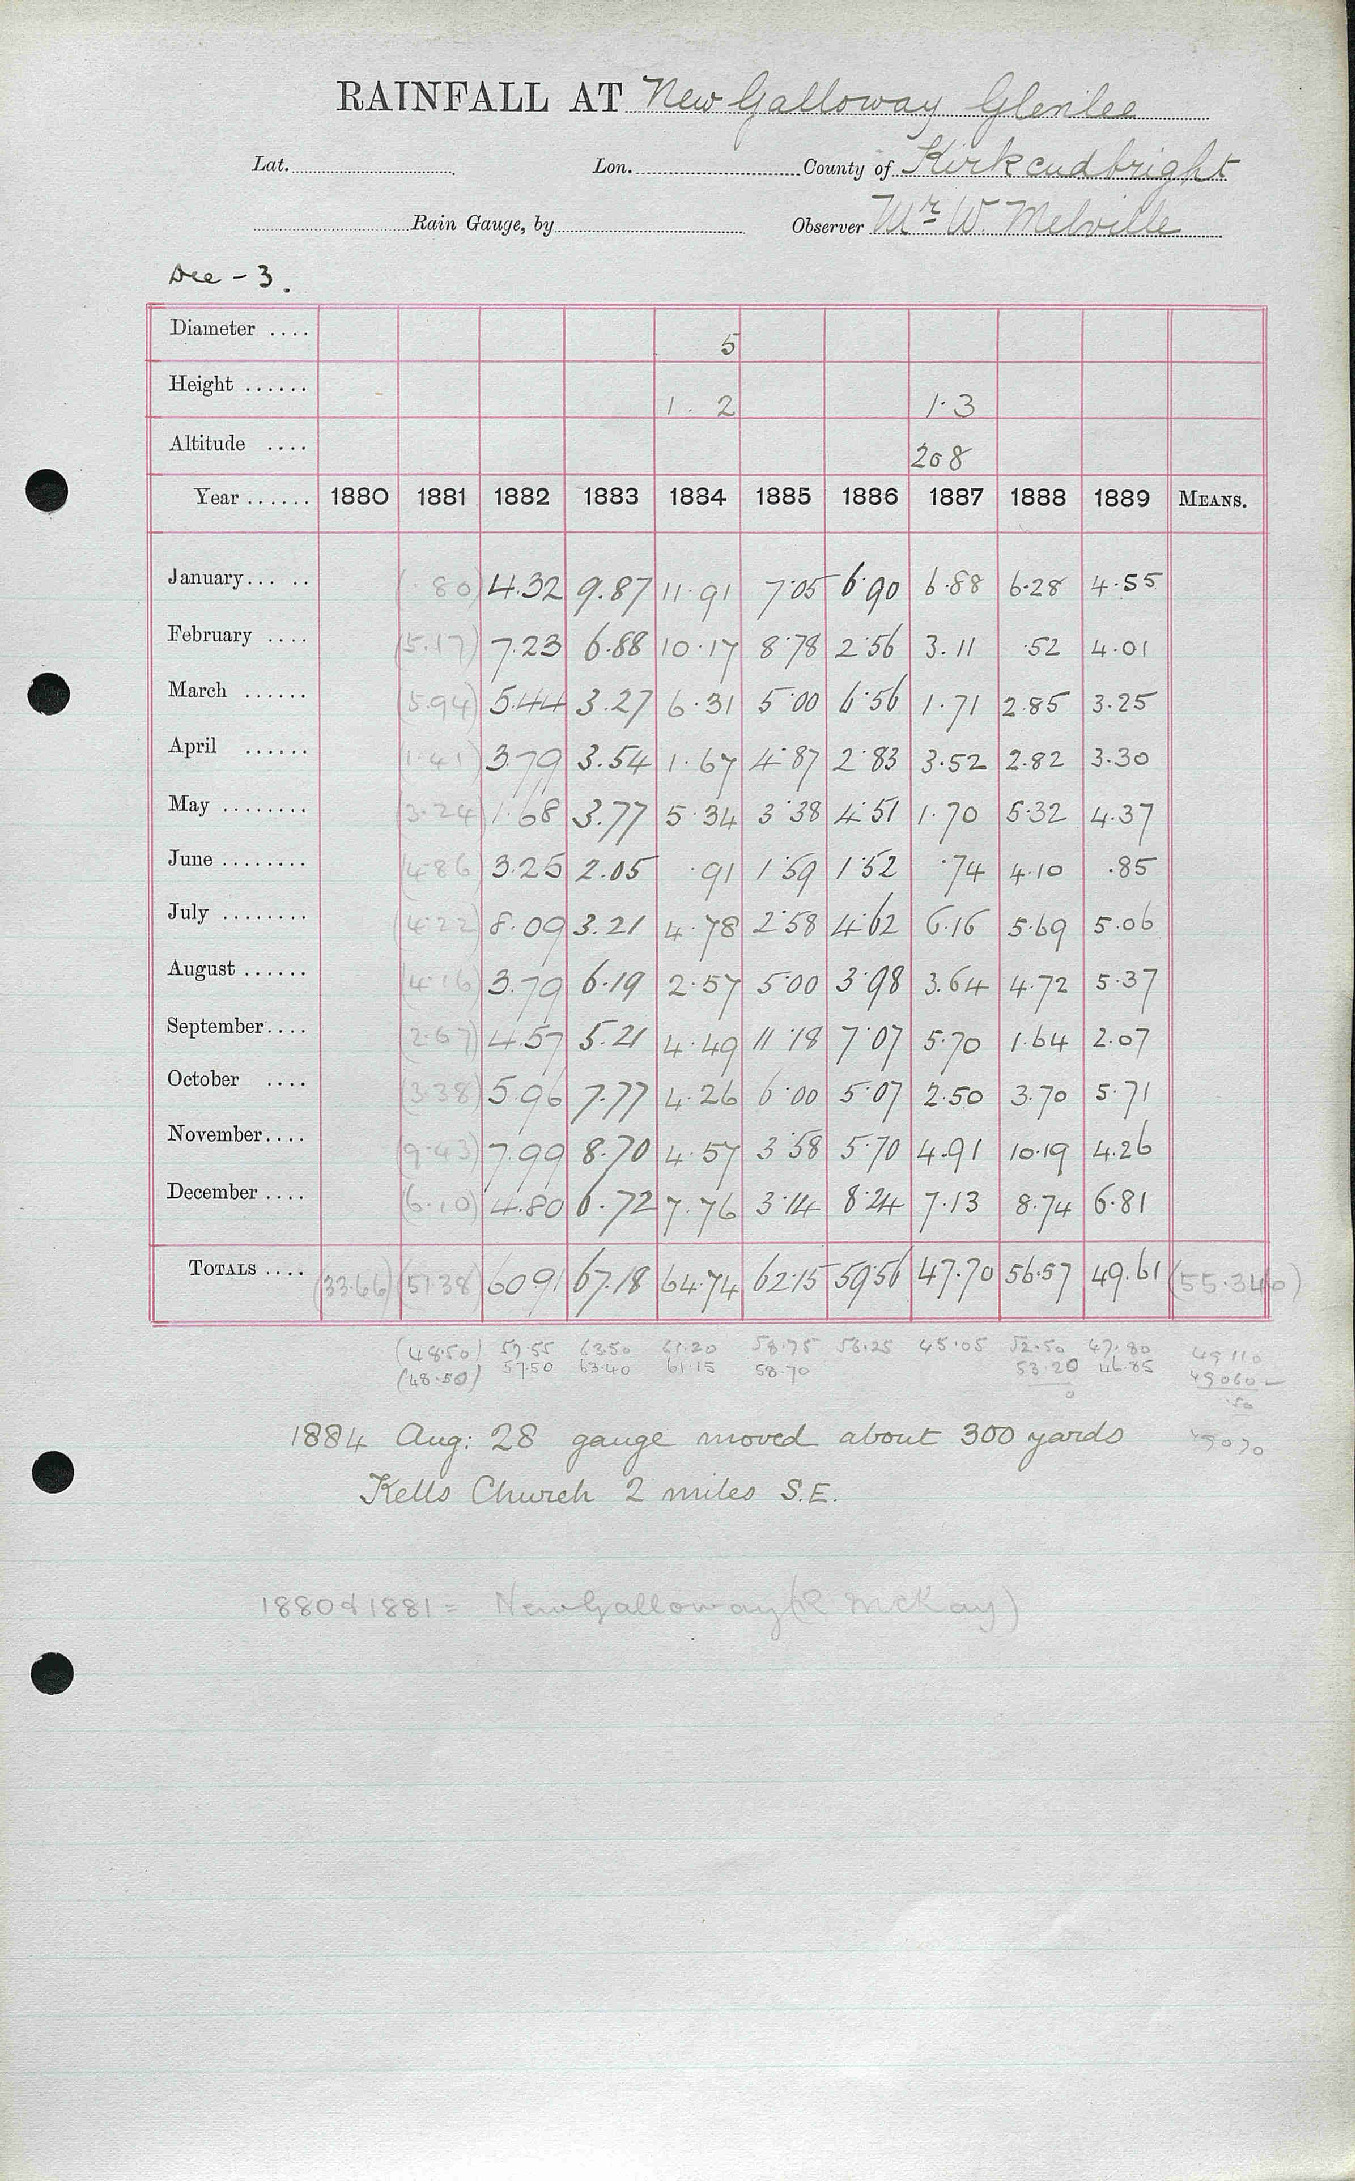 RAINFALL AT New Galloway Glenlee
Lat. Lon. County of Kirkcudbright
Rain Gauge, by Observer Mr W. Melville
Dee - 3.
Diameter .... 5
Height ...... 1. 2 1.3
Altitude .... 208
Year ...... 1880 1881 1882 1883 1884 1885 1886 1887 1888 1889 MEANS.
January... .. (.80) 4.32 9.87 11.91 7.05 6.90 6.88 6.28 4.55
February .... (5.17) 7.23 6.88 10.17 8.78 2.56 3.11 .52 4.01
March ...... (5.94) 5.44 3.27 6.31 5.00 6.56 1.71 2.85 3.25
April ...... (1.41) 3.79 3.54 1.67 4.87 2.83 3.52 2.82 3.30
May ........ (3.24) 1.68 3.77 5.34 3.38 4.51 1.70 5.32 4.37
June ........ (4.86) 3.25 2.05 .91 1.59 1.52 .74 4.10 .85
July ........ (4.22) 8.09 3.21 4.78 2.58 4.62 6.16 5.69 5.06
August ...... (4.16) 3.79 6.19 2.57 5.00 3.98 3.64 4.72 5.37
September.... (2.67) 4.57 5.21 4.49 11.18 7.07 5.70 1.64 2.07
October .... (3.38) 5.96 7.77 4.26 6.00 5.07 2.50 3.70 5.71
November.... (9.43) 7.99 8.70 4.57 3.58 5.70 4.91 10.19 4.26
December .... (6.10) 4.80 6.72 7.76 3.14 8.24 7.13 8.74 6.81
TOTALS .... (33.66) (51.38) 60.91 67.18 64.74 62.15 59.56 47.70 56.57 49.61 (55.346)
(48.50) 57.55 63.50 61.20 58.75 56.25 45.05 52.50 47.80 49110
(48.50) 57.50 63.40 61.15 58.70 53.20 46.85 49060
.50
0
1884 Aug: 28 gauge moved about 300 yards
Kells Church 2 miles S.E.
1880 & 1881 = New Galloway (R McKay)